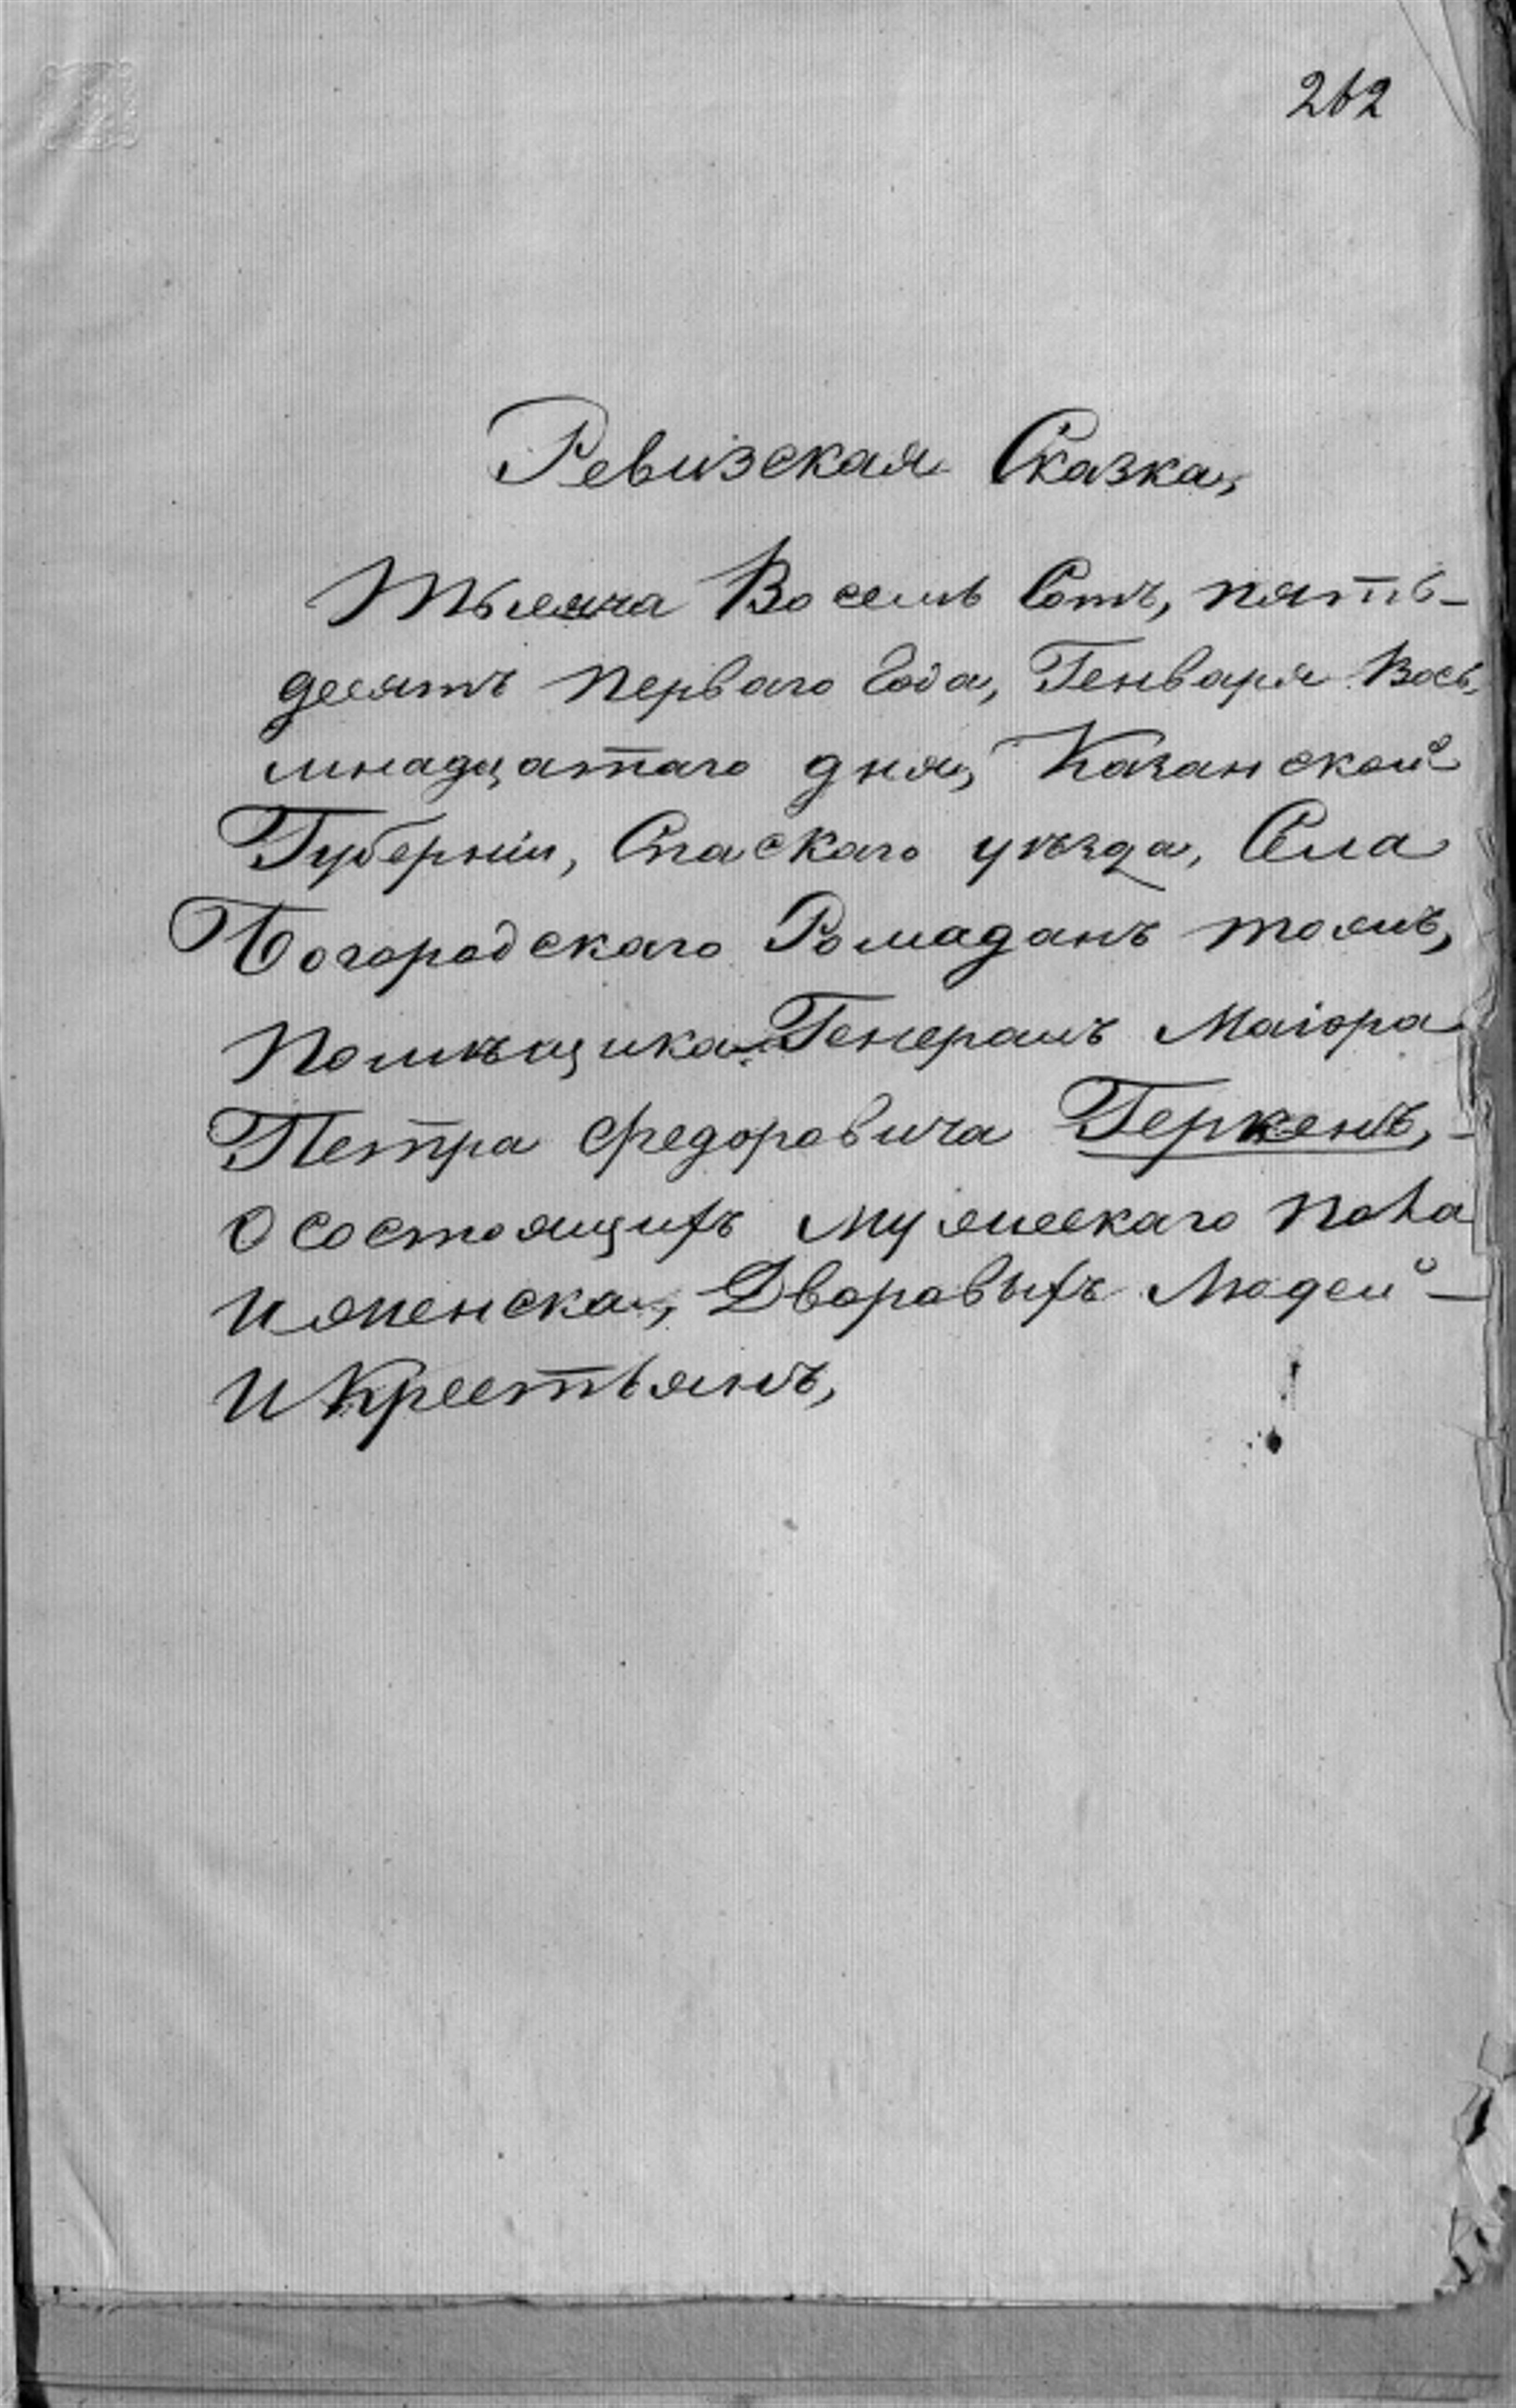 262
Ревизская Сказка,
Тысяча Восемь Сотъ, пять-
десятъ перваго Года, Генваря Вось,
мнадцатаго дня, Казанской
Губерніи, Спаскаго уѣзда, Села
Богородскаго Ромаданъ тожъ,
Помѣщика Генералъ Маіора
Петра Федоровича Геркенъ, -
О состоящихъ мужескаго пола
И женска, Дворовыхъ Людей -
И Крестьянъ,